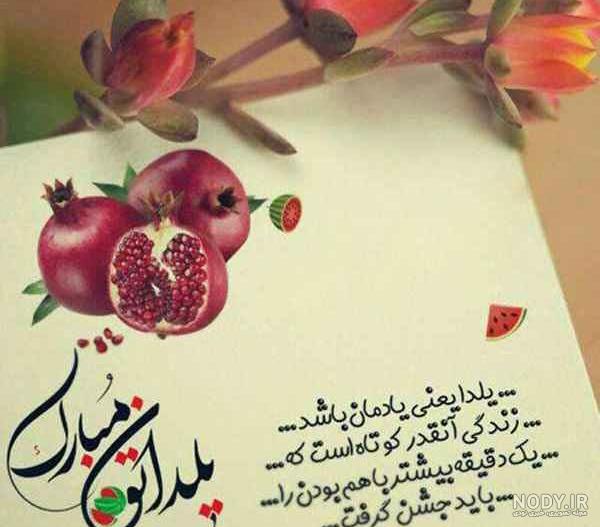 NODY.IR
... یلدا یعنی یادمان باشد ...
... زندگی آنقدر کوتاه است که ...
... یک دقیقه بیشتر با هم بودن را ...
... باید جشن گرفت ...
یلداتون مبارک
NODY.IR